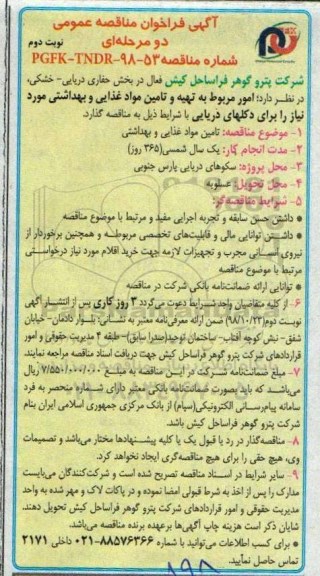 آگهی فراخوان مناقصه عمومی
دو مرحله‌ای
نوبت دوم
شماره مناقصه PGFK-TNDR-98-53
شرکت پترو گوهر فراساحل کیش فعال در بخش حفاری دریایی- خشکی،
در نظر دارد؛ امور مربوط به تهیه و تامین مواد غذایی و بهداشتی مورد
نیاز را برای دکلهای دریایی با شرایط ذیل به مناقصه گذارد.
۱- موضوع مناقصه: تامین مواد غذایی و بهداشتی
۲- مدت انجام کار: یک سال شمسی (۳۶۵ روز)
۳- محل پروژه: سکوهای دریایی پارس جنوبی
۴- محل تحویل: عسلویه
۵- شرایط مناقصه‌گر:
● داشتن حسن سابقه و تجربه اجرایی مفید و مرتبط با موضوع مناقصه
● داشتن توانایی مالی و قابلیت‌های تخصصی مربوطه و همچنین برخوردار از
نیروی انسانی مجرب و تجهیزات لازمه جهت خرید اقلام مورد نیاز درخواستی
مرتبط با موضوع مناقصه
● توانایی ارائه ضمانت‌نامه بانکی شرکت در مناقصه
۶- از کلیه متقاضیان واجد شرایط دعوت می‌گردد ۳ روز کاری پس از انتشار آگهی
نوبت دوم (۹۸/۱۰/۲۳) ضمن ارائه معرفی‌نامه معتبر به نشانی: بلوار دادمان- خیابان
شفق- نبش کوچه آفتاب- ساختمان توحید (صدرا سابق)- طبقه ۴ مدیریت حقوقی و امور
قراردادهای شرکت پترو گوهر فراساحل کیش جهت دریافت اسناد مناقصه مراجعه نمایند.
۷- مبلغ ضمانت‌نامه شرکت در این مناقصه به مبلغ ۷/۵۵۰/۰۰۰/۰۰۰ ریال
می‌باشد که باید بصورت ضمانت‌نامه بانکی معتبر دارای شماره منحصر به فرد
سامانه پیام‌رسانی الکترونیکی (سپام) از بانک مرکزی جمهوری اسلامی ایران بنام
شرکت پترو گوهر فراساحل کیش باشد.
۸- مناقصه‌گذار در رد یا قبول یک یا کلیه پیشنهادها مختار می‌باشد و تصمیمات
وی، هیچ حقی را برای هیچ مناقصه‌گری ایجاد نخواهد کرد.
۹- سایر شرایط در اسناد مناقصه تصریح شده است و شرکت‌کنندگان می‌بایست
مدارک را پس از اخذ به شرط قبولی امضا نموده و در پاکات لاک و مهر شده به واحد
مدیریت حقوقی و امور قراردادهای شرکت پترو گوهر فراساحل کیش تحویل دهند.
شایان ذکر است هزینه چاپ آگهی‌ها برعهده برنده مناقصه می‌باشد.
● برای کسب اطلاعات می‌توانید با شماره ۸۸۵۷۶۳۶۶-۰۲۱ داخلی ۲۱۷۱
تماس حاصل نمایید.